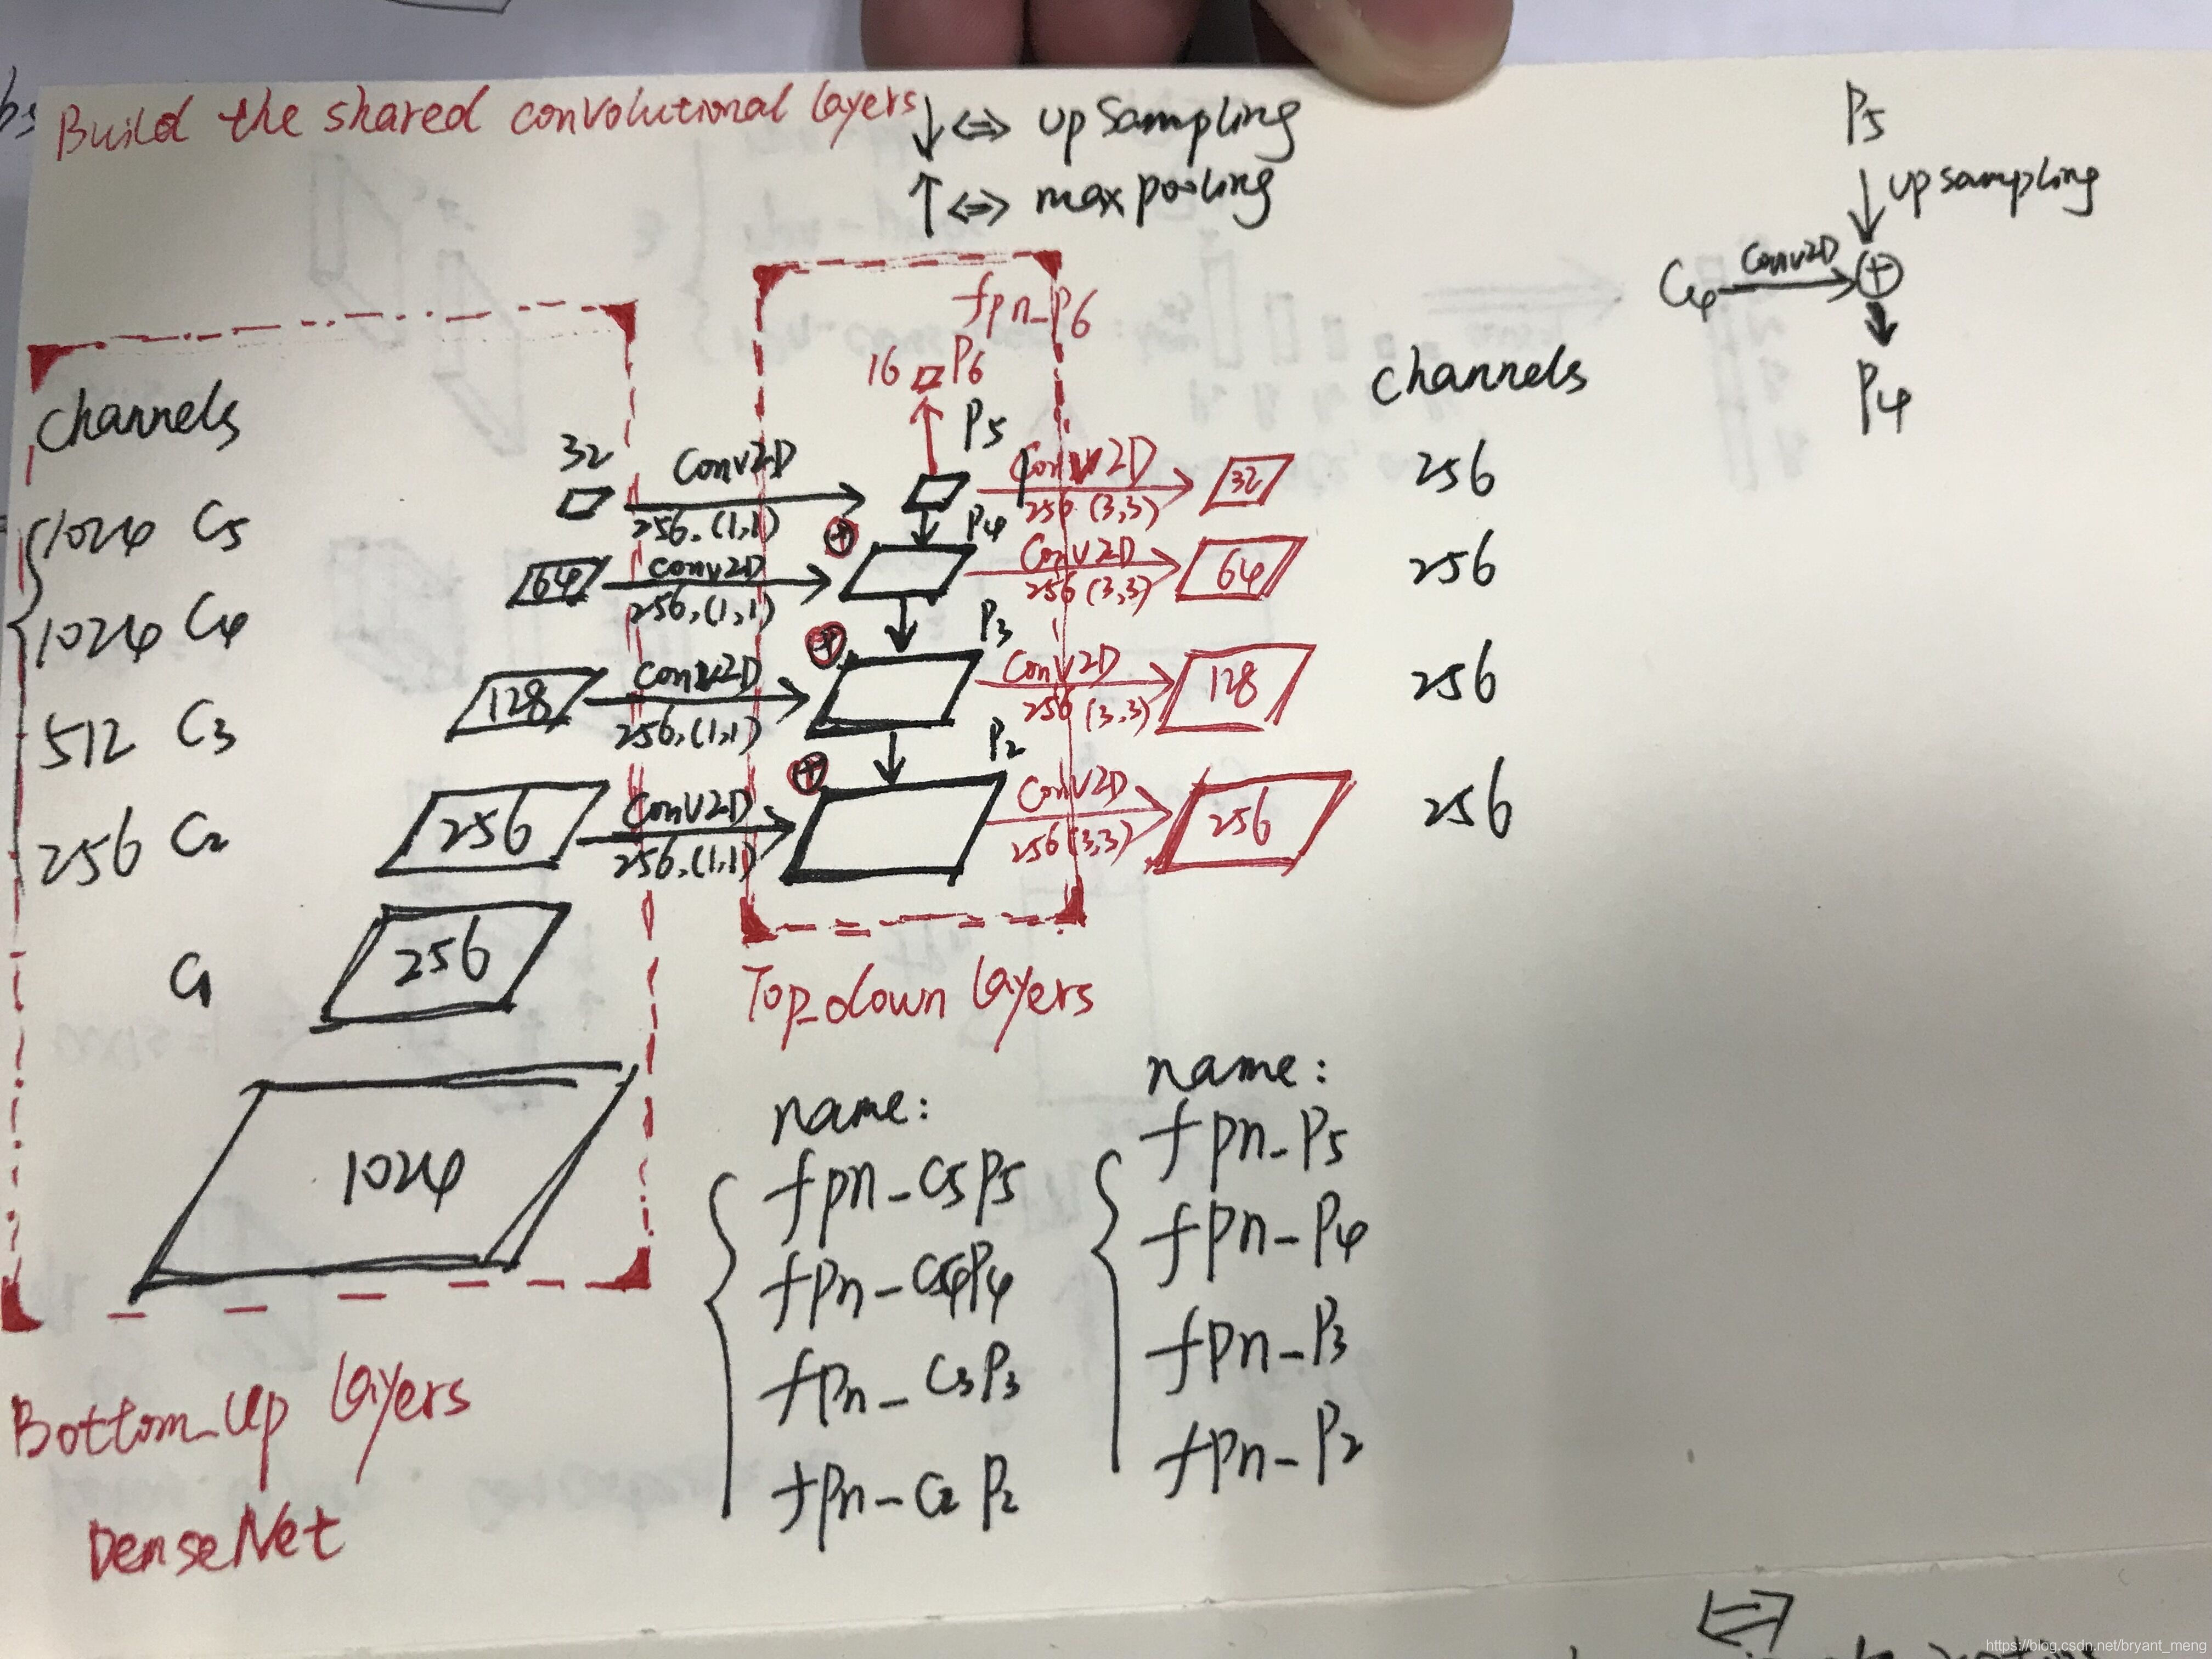 Build the shared convolutional layers
↓ ⇔ upsampling
↑ ⇔ maxpooling
P5
↓ upsampling
C4 Conv2D → ⊕
P4
fpn_P6
16 P6
channels
channels
32 Conv2D P5 Conv2D 32 256
1024 C5 256,(1,1) 256 (3,3)
⊕ P4
64 Conv2D Conv2D 64 256
1024 C4 256,(1,1) 256 (3,3)
⊕ P3
128 Conv2D Conv2D 128 256
512 C3 256,(1,1) 256 (3,3)
⊕ P2
256 Conv2D Conv2D 256 256
256 C2 256,(1,1) 256 (3,3)
C1 256
Top_down layers
1024
name:
fpn_C5P5
fpn_C4P4
fpn_C3P3
fpn_C2P2
name:
fpn_P5
fpn_P4
fpn_P3
fpn_P2
Bottom_up layers
DenseNet
https://blog.csdn.net/bryant_meng